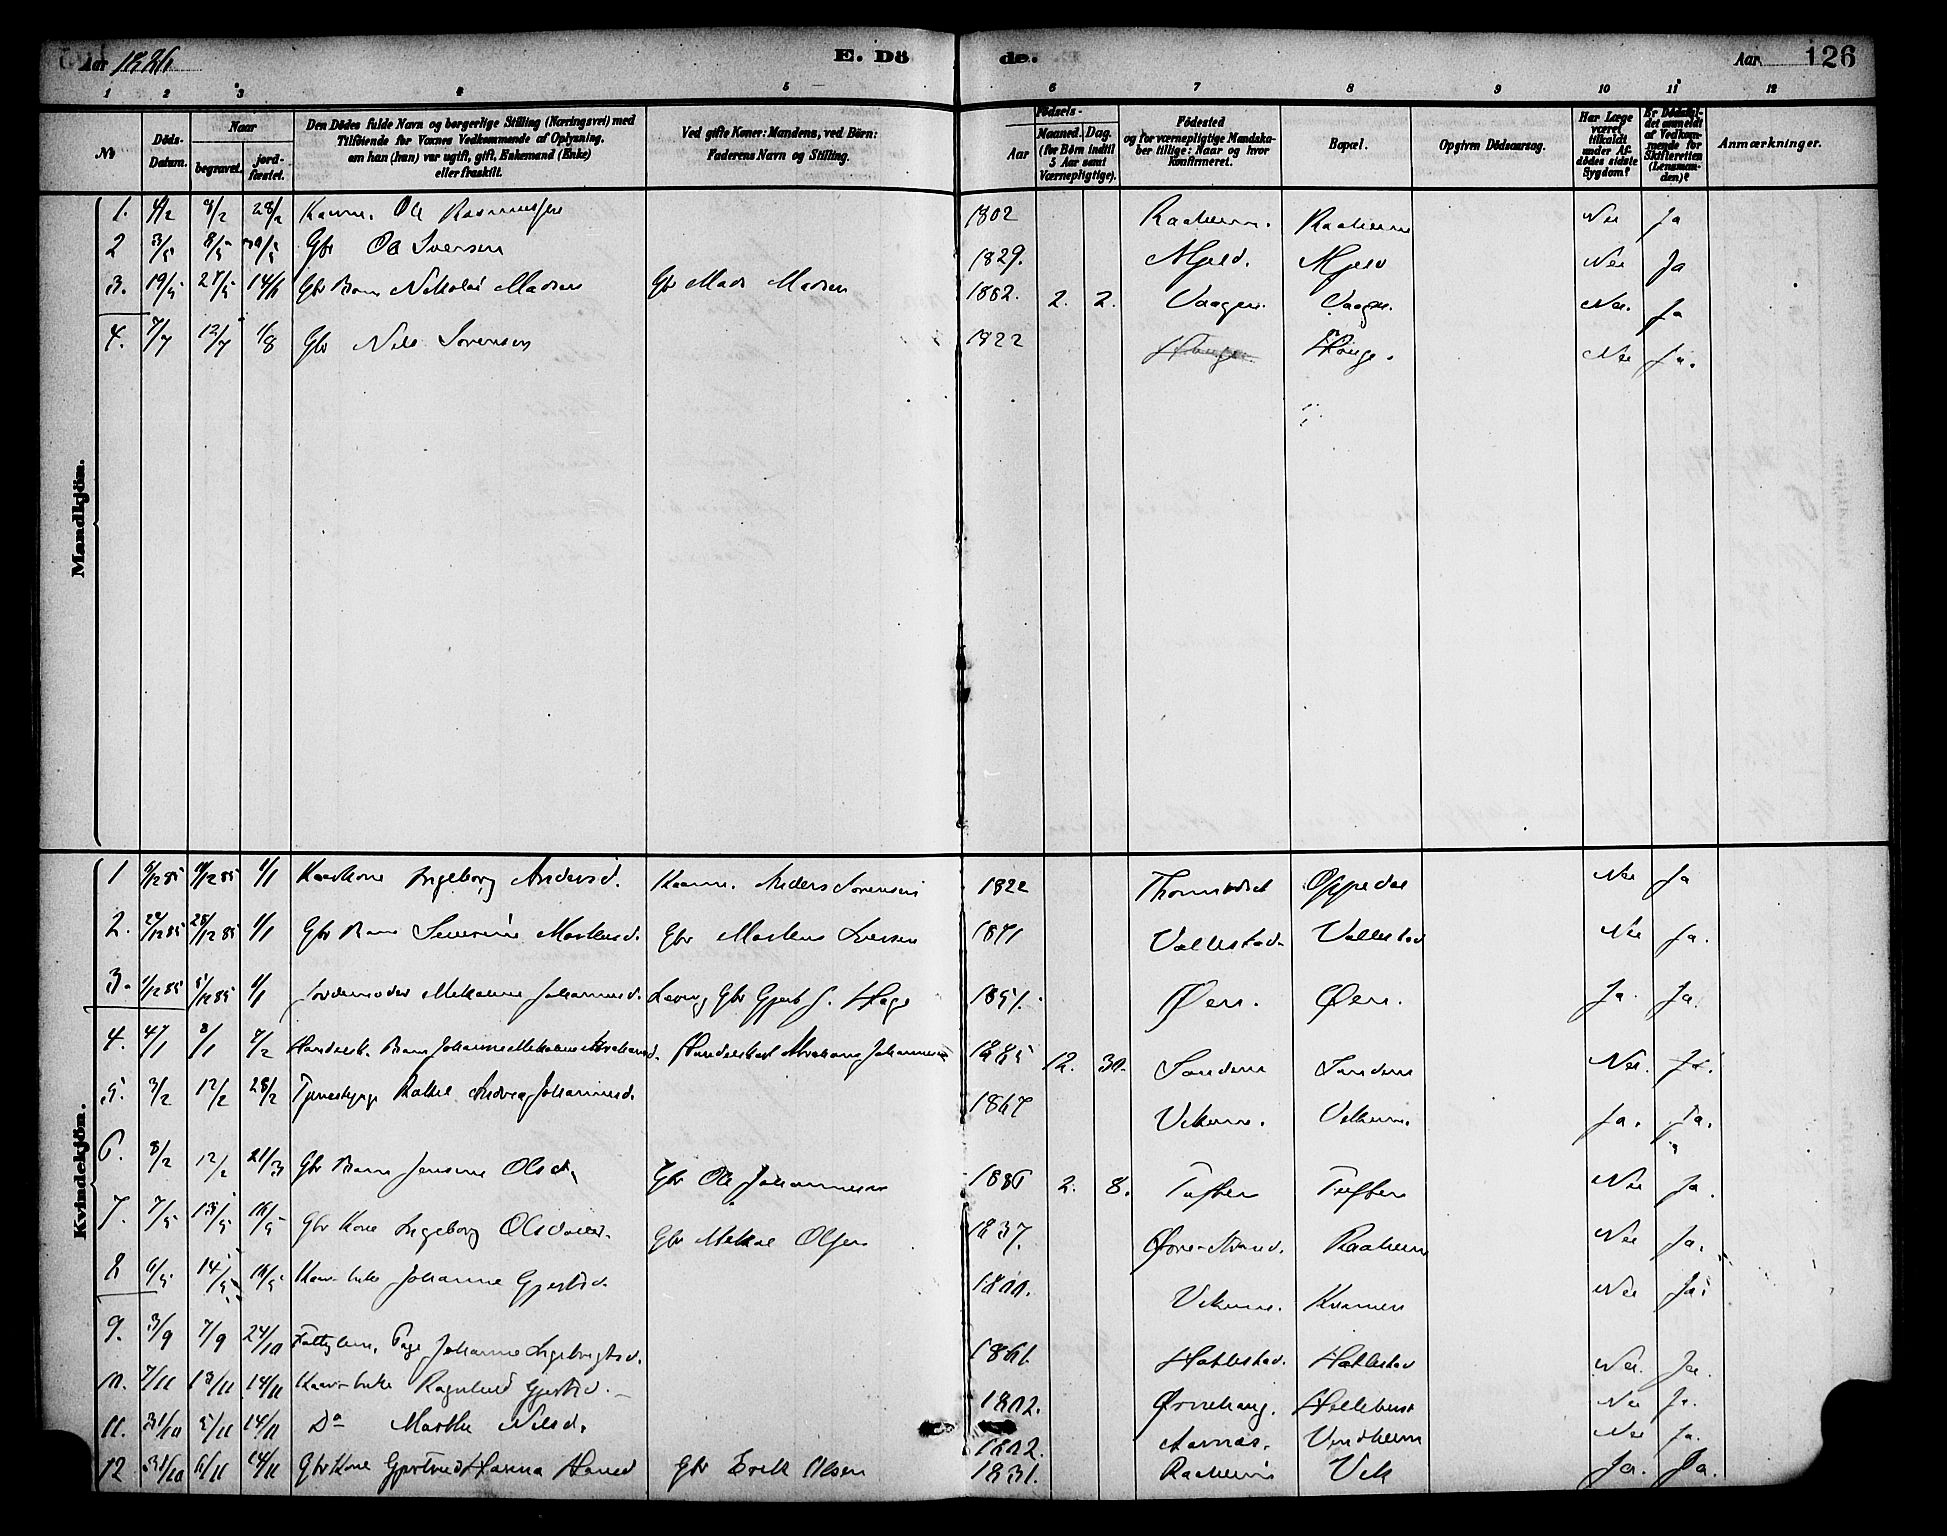 Aar 1886 E. Dö de. Aar 126
1 2 3 4 5 6 7 8 9 10 11 12
№
Döds-Datum.
Naar
begravet.
jord-fæstet.
Den Dödes fulde Navn og borgerlige Stilling (Næringsvei) med
Tilföiende for Voxnes Vedkommende af Oplysning,
om han (hun) var ugift, gift, Enkemand (Enke)
eller fraskilt.
Ved gifte Koner: Mandens, ved Börn:
Faderens Navn og Stilling.
Födsels-
Aar
Maaned. Dag.
(for Börn indtil
5 Aar samt
Værnepligtige).
Födested
og for værnepligtige Mandska-
ber tillige: Naar og hvor
konfirmeret.
Bopæl.
Opgiven Dödsaarsag.
Har Læge
været
tilkaldt
under Af-
dödes sidste
Sygdom?
Er Dödsfal-
det anmeldt
af Vedkom-
mende for
Skifteretten
(Lensman-
den)?
Anmærkninger.
Mandkjön.
1. 4/2 8/2 28/2 Ole Rasmussen 1802 Raaheim. Raaheim Nei Ja
2 3/5 8/5 Gbr Ole Iversen 1829. Mjeld. Mjeld Nei Ja
3. 19/5 27/5 14/6 Gbr Barn Nikolai Madsen Gbr Mads Madsen 1882. 2. 2. Vaagen. Vaagen. Nei. Ja
4. 7/7 12/7 1/8 Gbr Nils Sorensen 1822 Hauge. Hauge. Nei Ja.
Kvindekjön.
1 6/12 85 1/1 Ingeborg Andersd. Anders Sorensen 1822 Oppedal Nei Ja
2. 24/12 85 28/12 85 1/1 Gbr Barn Severine Markusd. Gbr Markus Iversen 1871 Vallestad. Vallestad Nei Ja.
3. 1/12 85 5/12 85 1/1 Jordemoder Mekaline Johannesd. Gbr Gjert J. Hage 1851. Øen. Øen. Ja. Ja.
4. 4/1 8/1 7/2 Handelsk. Barn Johanne Mekaline Abrahamsd. Handelskarl Abraham Johannesen 1885 12. 30. Sanden Sanden Nei. Ja.
5. 3/2 12/2 28/2 Tjenestepige Rakel Andrea Johannesd. 1867 Vikum. Vikum. Ja. Ja.
6. 8/2 12/2 21/3 Gbr Barn Jensine Olsd. Gbr Ole Johannesen 1886 2. 8. Tuften Tuften Nei Ja.
7. 7/5 13/5 16/5 Gbr Kone Ingeborg Olsdatter. Gbr Mekal Olsen 1837. Raaheim Nei Ja.
8 6/5 14/5 16/5 Johanne Gjertsd. 1800. Vikum. Kvamen Nei Ja.
9. 3/9 7/9 24/10 Pige Johanne Ingebrigtsd. 1861. Hatlestad. Hatlestad Nei. Ja.
10. 7/11 13/11 14/11 Ragnhild Gjertsd. 1802. Ørnehaug. Nei Ja.
11. 31/10 5/11 14/11 Do Marthe Nilsd. 1802. Aarnas. Vindheim Nei Ja.
12 31/10 6/11 14/11 Gbr Kone Gjertrud Hanna Hansd Gbr Erik Olsen 1831. Raaheim Vik Ja. Ja.